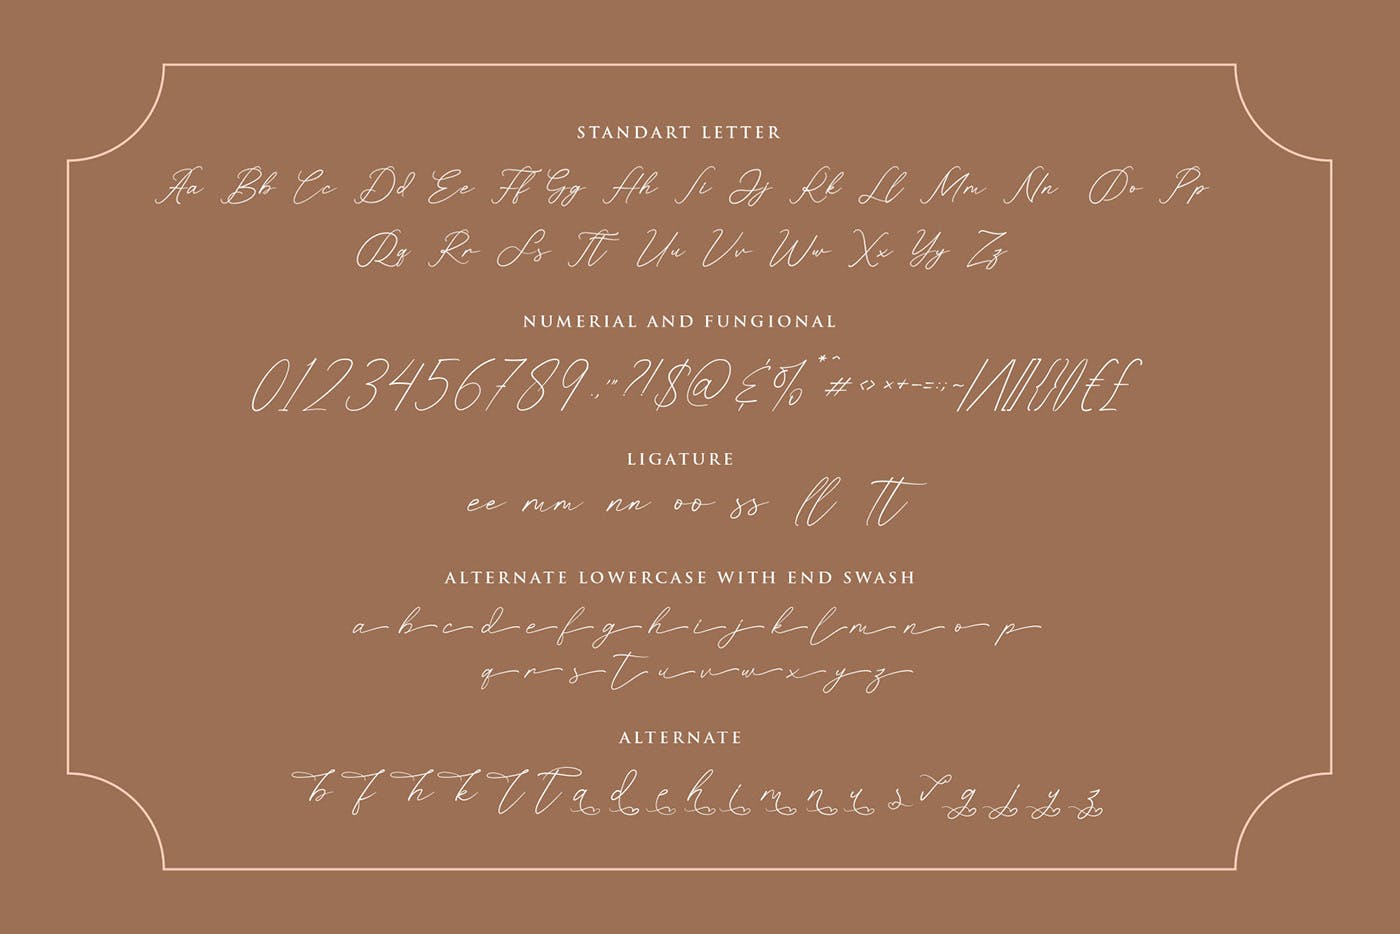 STANDART LETTER
Aa Bb Cc Dd Ee Ff Gg Hh Ii Jj Kk Ll Mm Nn Oo Pp
Qq Rr Ss Tt Uu Vv Ww Xx Yy Zz
NUMERIAL AND FUNGIONAL
0123456789.,'"?!$@&%*^#<>×+-=:;~
LIGATURE
ee mm nn oo ss ll tt
ALTERNATE LOWERCASE WITH END SWASH
a b c d e f g h i j k l m n o p
q r s t u v w x y z
ALTERNATE
b f h k l t a d e h i m n u s g j y z